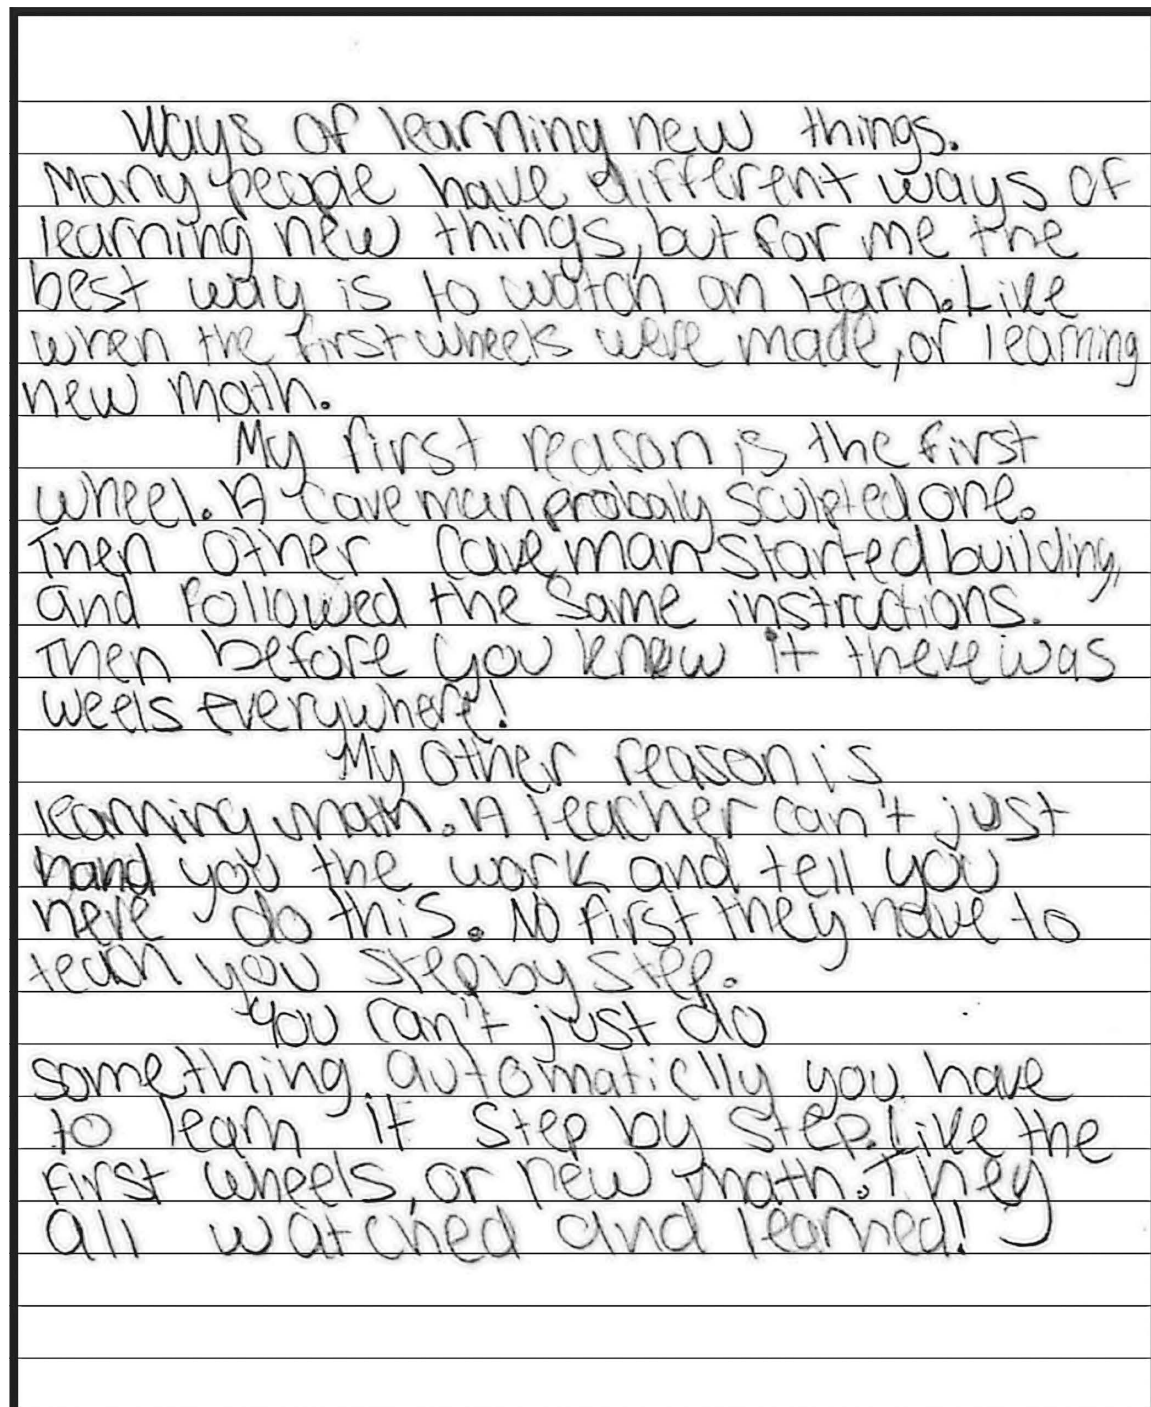 Ways of learning new things.
Many people have different ways of
learning new things, but for me the
best way is to watch an learn. Like
when the first wheels were made, or learning
new math.
My first reason is the first
wheel. A cave man probaly sculpted one.
Then other cave man started building,
and followed the same instructions.
Then before you know it there was
weels everywhere!
My other reason is
learning math. A teacher can't just
hand you the work and tell you
here do this. No first they have to
teach you step by step.
You can't just do
something automaticlly you have
to learn it step by step. Like the
first wheels, or new math. They
all watched and learned!